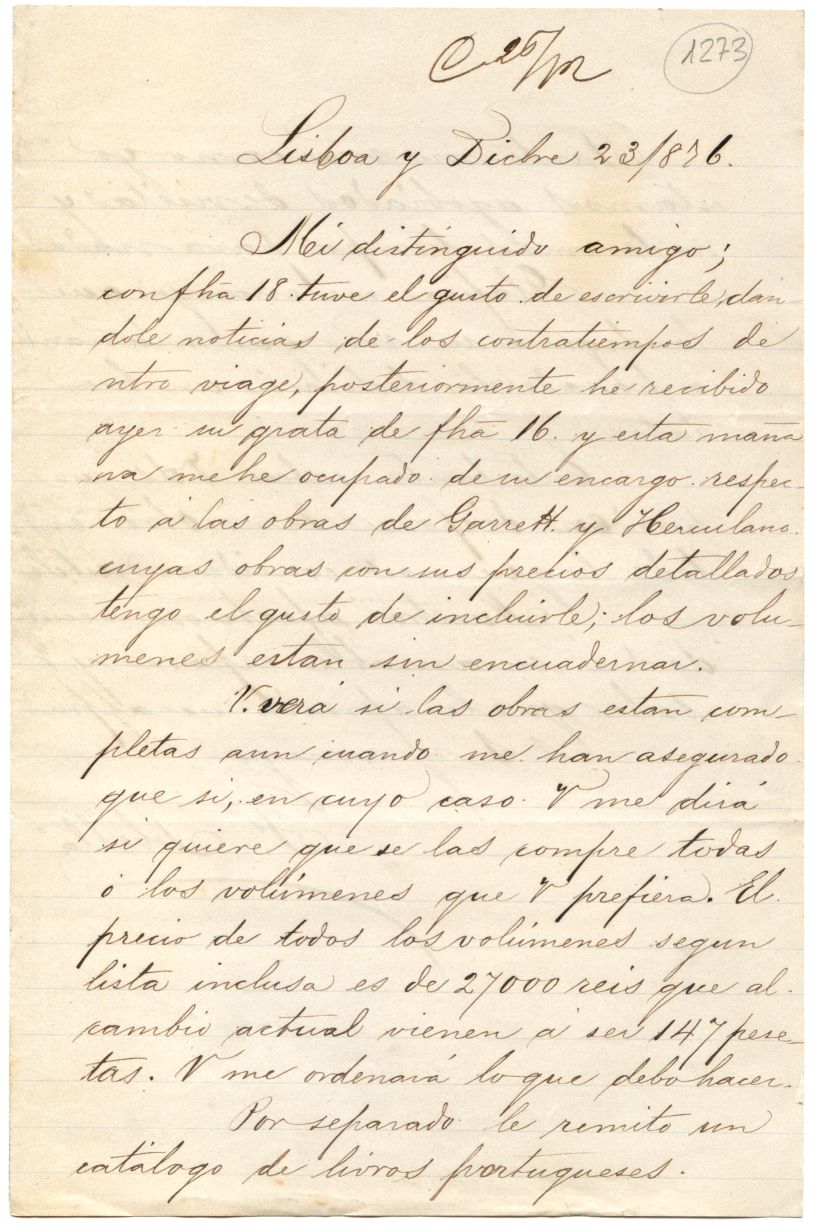 C 26/m
1273
Lisboa y Dicbre 23/876.
Mi distinguido amigo;
con fhã 18. tuve el gusto de escrivirle, dan-
dole noticias de los contratiempos de
ntro viage, posteriormente he recibido
ayer su grata de fhã 16. y esta maña
na me he ocupado de su encargo respec-
to á las obras de Garrett. y Herculano.
cuyas obras con sus precios detallados
tengo el gusto de incluirle; los volu-
menes estan sin encuadernar.
V. verá si las obras estan com-
pletas aun cuando me han asegurado
que si, en cuyo caso V me dirá
si quiere que se las compre todas
ó los volúmenes que V prefiera. El
precio de todos los volúmenes segun
lista inclusa es de 27000 reis que al
cambio actual vienen á ser 147 pese-
tas. V me ordenará lo que debo hacer.
Por separado le remito un
catálogo de livros portugueses.